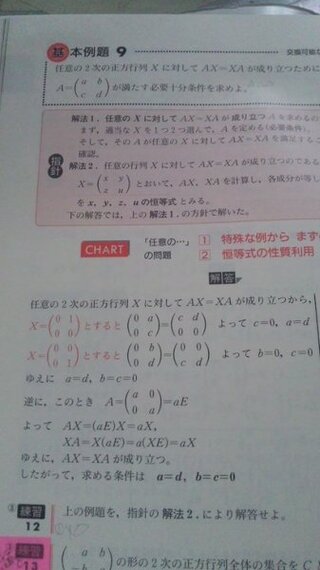 基 本例題 9
交換可能な
任意の2次の正方行列 X に対して AX=XA が成り立つために
A=(a b
c d) が満たす必要十分条件を求めよ。
指針
解法1. 任意の X に対して AX=XA が成り立つ A を求めるの
まず，適当な X を1つ2つ選んで，A を定める(必要条件)。
そして，その A が任意の X に対して AX=XA を満足する
確認。
解法2. 任意の行列 X に対して AX=XA が成り立つのである
X=(x y
z u) とおいて，AX，XA を計算し，各成分が等し
を x，y，z，u の恒等式とみる。
下の解答では，上の解法1. の方針で解いた。
CHART 「任意の…」の問題
1 特殊な例から まず
2 恒等式の性質利用
解答
任意の2次の正方行列 X に対して AX=XA が成り立つから，
X=(0 1
0 0) とすると (0 a
0 c)=(c d
0 0) よって c=0，a=d
X=(0 0
0 1) とすると (0 b
0 d)=(0 0
c d) よって b=0，c=0
ゆえに a=d，b=c=0
逆に，このとき A=(a 0
0 a)=aE
よって AX=(aE)X=aX，
XA=X(aE)=a(XE)=aX
ゆえに，AX=XA が成り立つ。
したがって，求める条件は a=d，b=c=0
練習 12 上の例題を，指針の解法2. により解答せよ。
練習 13
(a b の形の2次の正方行列全体の集合を C